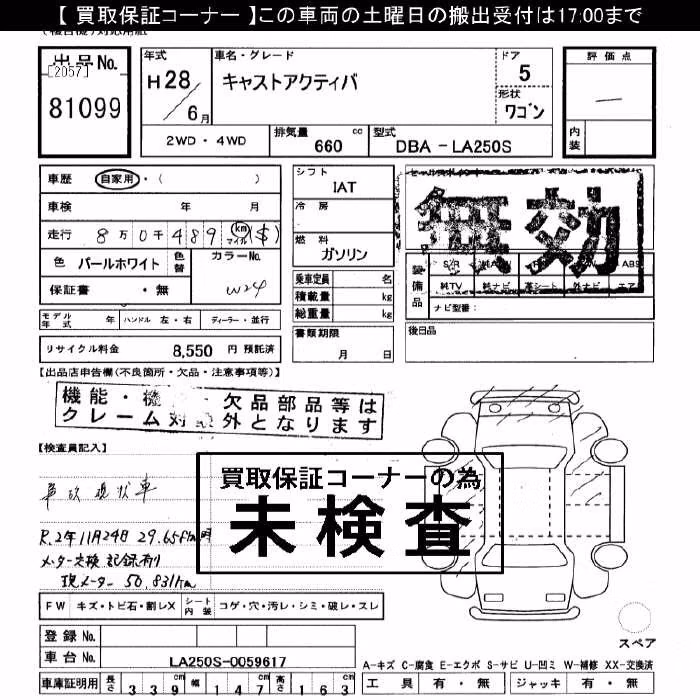 【 買取保証コーナー 】この車両の土曜日の搬出受付は17:00まで
出品No.
[2057]
81099
年式
H28
6月
車名・グレード
キャストアクティバ
ドア
5
形状
ワゴン
評価点
—
内装
2WD・4WD
排気量 660 cc
型式 DBA - LA250S
車歴 自家用・( )
車検 年 月
走行 8万0千489 km マイル ($)
色 パールホワイト 色替
カラーNo.
W24
保証書 ・無
モデル年式 年 ハンドル 左・右 ディーラー・並行
リサイクル料金 8,550 円 預託済
シフト
IAT
冷房
燃料
ガソリン
乗車定員 名
積載量 kg
総重量 kg
書類期限
月 日
無効
装備品
純TV 純ナビ 革シート 外ナビ エア
ナビ型番:
後日品
【出品店申告欄(不良箇所・欠品・注意事項等)】
機能・機 欠品部品等は
クレーム対 外となります
【検査員記入】
現状車
買取保証コーナーの為
未検査
R.2年11月24日 29.65
メーター交換 記録有り
現メーター 50,831km
FW キズ・トビ石・割レX シート内装 コゲ・穴・汚レ・シミ・破レ・スレ
登録No.
車台No. LA250S-0059617
車庫証明用 長さ 339 幅 147 高さ 163
スペア
A-キズ C-腐食 E-エクボ S-サビ U-凹ミ W-補修 XX-交換済
工具 有・無 ジャッキ 有・無